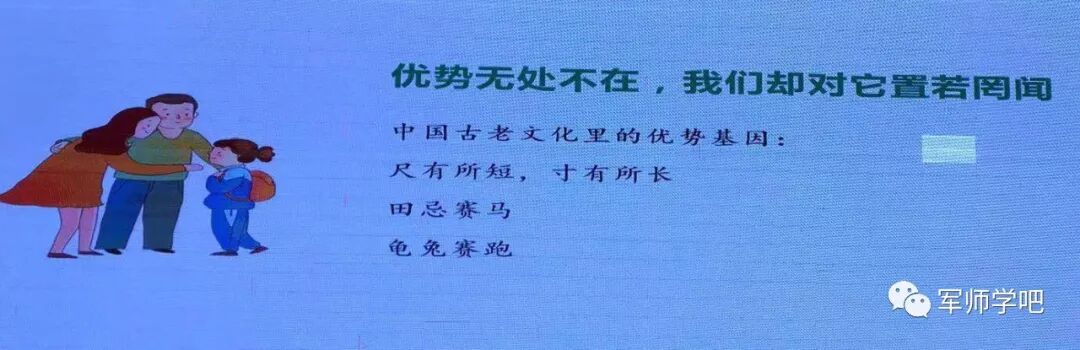 优势无处不在，我们却对它置若罔闻
中国古老文化里的优势基因：
尺有所短，寸有所长
田忌赛马
龟兔赛跑
军师学吧